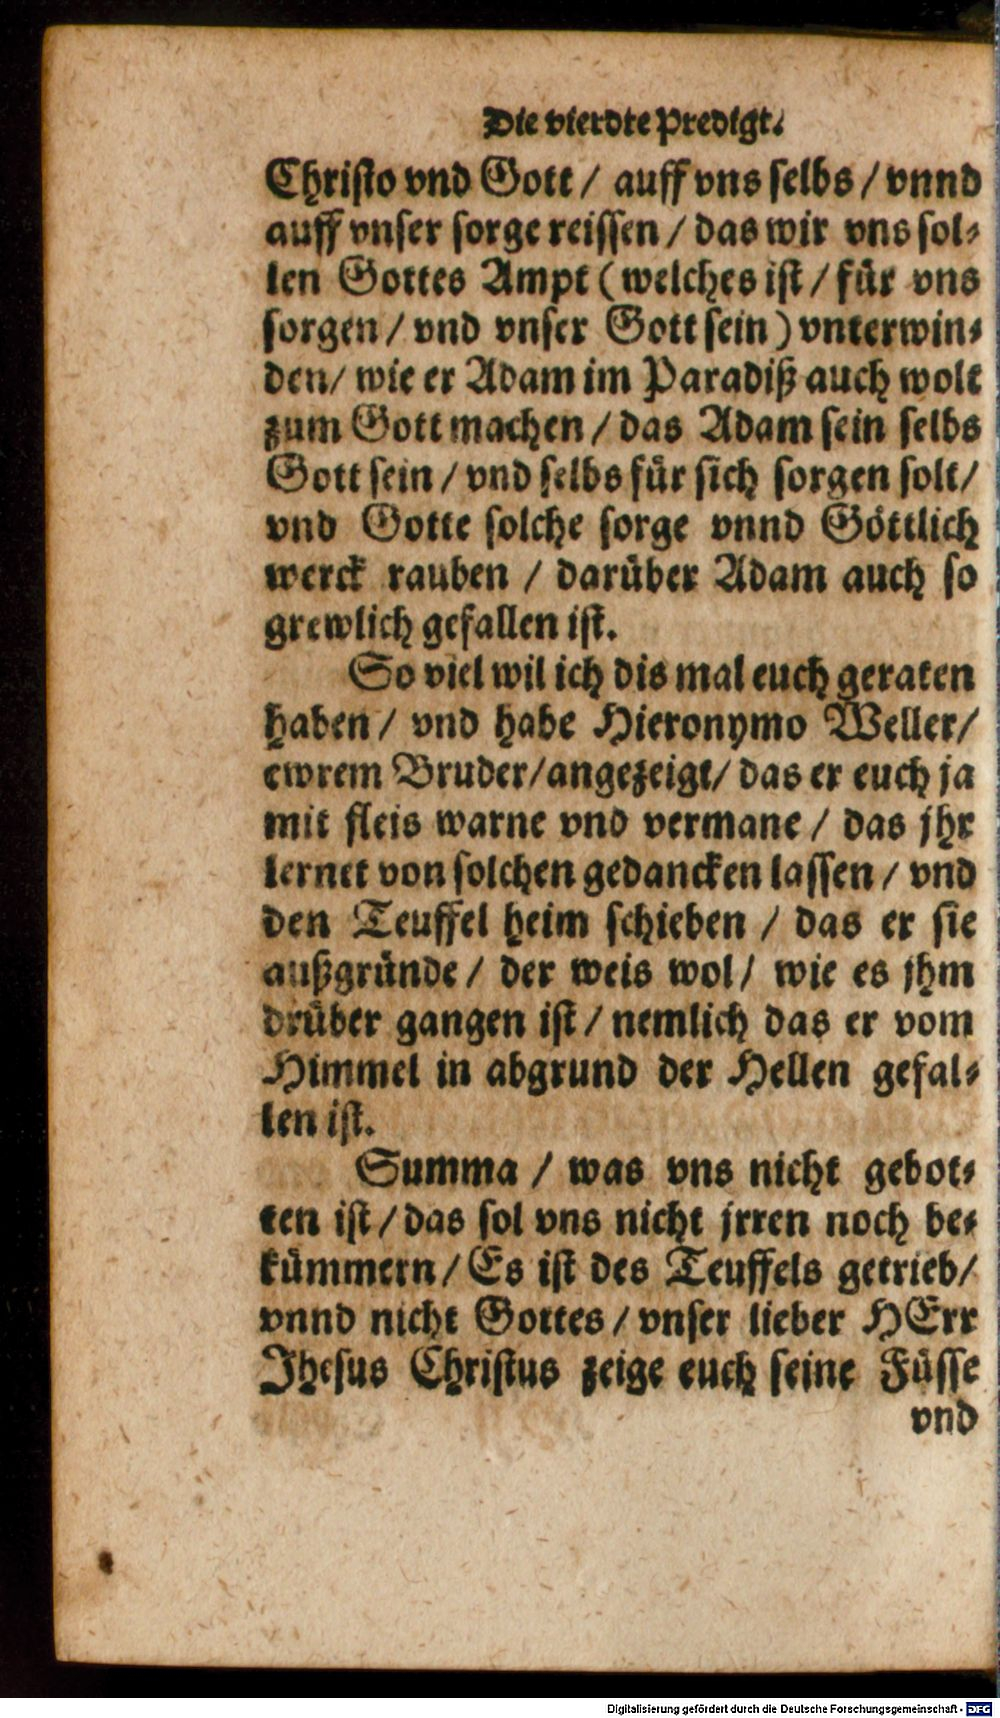 Die vierdte Predigt.
Christo vnd Gott / auff vns selbs / vnnd
auff vnser sorge reissen / das wir vns sol⸗
len Gottes Ampt (welches ist / für vns
sorgen / vnd vnser Gott sein) vnterwin⸗
den / wie er Adam im Paradiß auch wolt
zum Gott machen / das Adam sein selbs
Gott sein / vnd selbs für sich sorgen solt /
vnd Gotte solche sorge vnnd Göttlich
werck rauben / darüber Adam auch so
grewlich gefallen ist.
So viel wil ich dis mal euch geraten
haben / vnd habe Hieronymo Weller /
ewrem Bruder / angezeigt / das er euch ja
mit fleis warne vnd vermane / das jhr
lernet von solchen gedancken lassen / vnd
den Teuffel heim schieben / das er sie
außgründe / der weis wol / wie es jhm
drüber gangen ist / nemlich das er vom
Himmel in abgrund der Hellen gefal⸗
len ist.
Summa / was vns nicht gebot⸗
ten ist / das sol vns nicht jrren noch be⸗
kümmern / Es ist des Teuffels getrieb /
vnnd nicht Gottes / vnser lieber HErr
Jhesus Christus zeige euch seine Füsse
vnd
Digitalisierung gefördert durch die Deutsche Forschungsgemeinschaft - DFG